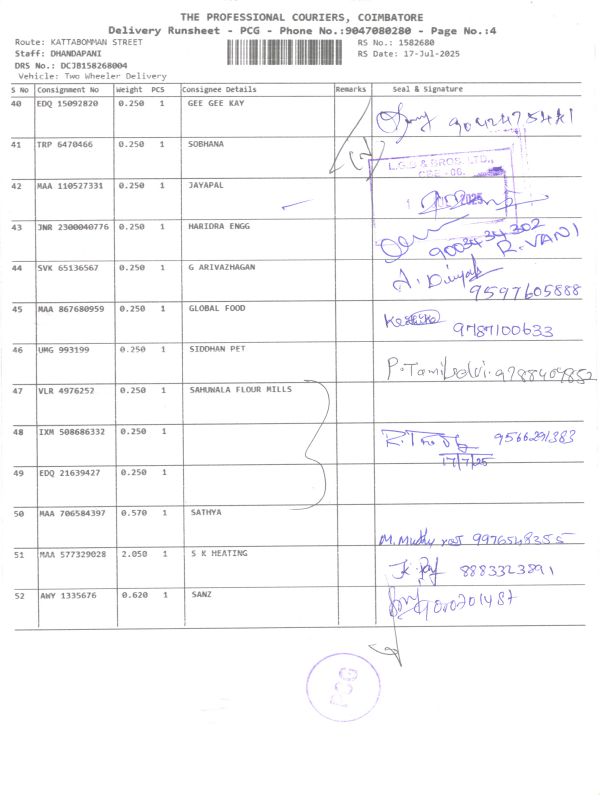 THE PROFESSIONAL COURIERS, COIMBATORE
Delivery Runsheet - PCG - Phone No.:9047080280 - Page No.:4
Route: KATTABOMMAN STREET
RS No.: 1582680
Staff: DHANDAPANI
RS Date: 17-Jul-2025
DRS No.: DCJB158268004
Vehicle: Two Wheeler Delivery
S No Consignment No Weight PCS Consignee Details Remarks Seal & Signature
40 EDQ 15092820 0.250 1 GEE GEE KAY
41 TRP 6470466 0.250 1 SOBHANA
L.G.B & BROS. LTD.,
CBE - 06.
42 MAA 110527331 0.250 1 JAYAPAL
2025
43 JNR 2300040776 0.250 1 HARIDRA ENGG 9003434302
R.VANI
44 SVK 65136567 0.250 1 G ARIVAZHAGAN
9597605888
45 MAA 867680959 0.250 1 GLOBAL FOOD
9787100633
46 UMG 993199 0.250 1 SIDDHAN PET
P.Tamilselvi. 9788409852
47 VLR 4976252 0.250 1 SAHUNALA FLOUR MILLS
48 IXM 508686332 0.250 1 9566291383
17/7/25
49 EDQ 21639427 0.250 1
50 MAA 706584397 0.570 1 SATHYA
9976548355
51 MAA 577329028 2.050 1 S K HEATING
8883323891
52 AWY 1335676 0.620 1 SANZ
PCG